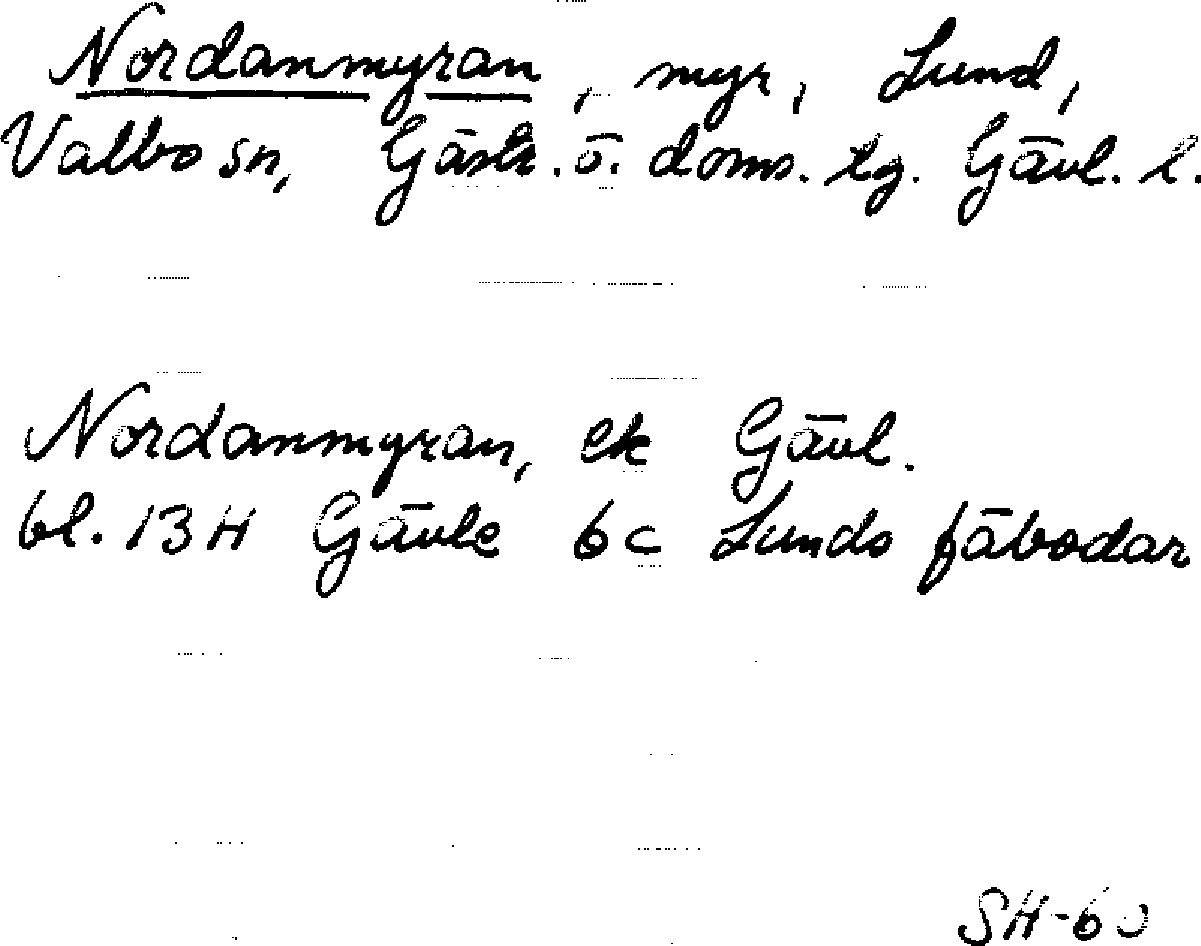 Nordanmyran, myr, Lund,
Valbo sn, Gästr. ö. doms. tg. Gävl. l.
Nordanmyran, ek Gävl.
bl. 13H Gävle 6c Lunds fäbodar
SH-60